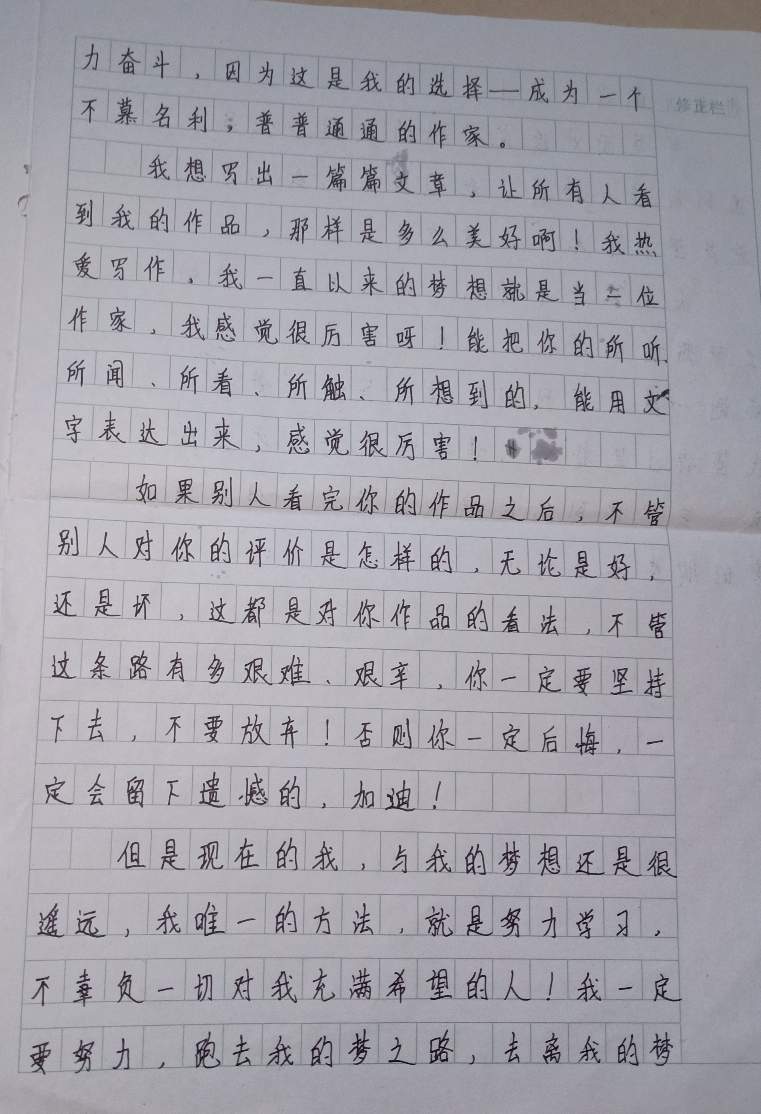 力奋斗，因为这是我的选择——成为一个
修正栏
不慕名利，普普通通的作家。
我想写出一篇篇文章，让所有人看
到我的作品，那样是多么美好啊！我热
爱写作，我一直以来的梦想就是当一位
作家，我感觉很厉害呀！能把你的所听、
所闻、所看、所触、所想到的，能用文
字表达出来，感觉很厉害！
如果别人看完你的作品之后，不管
别人对你的评价是怎样的，无论是好，
还是坏，这都是对你作品的看法，不管
这条路有多艰难、艰辛，你一定要坚持
下去，不要放弃！否则你一定后悔，一
定会留下遗憾的，加迪！
但是现在的我，与我的梦想还是很
遥远，我唯一的方法，就是努力学习，
不辜负一切对我充满希望的人！我一定
要努力，跑去我的梦之路，去离我的梦